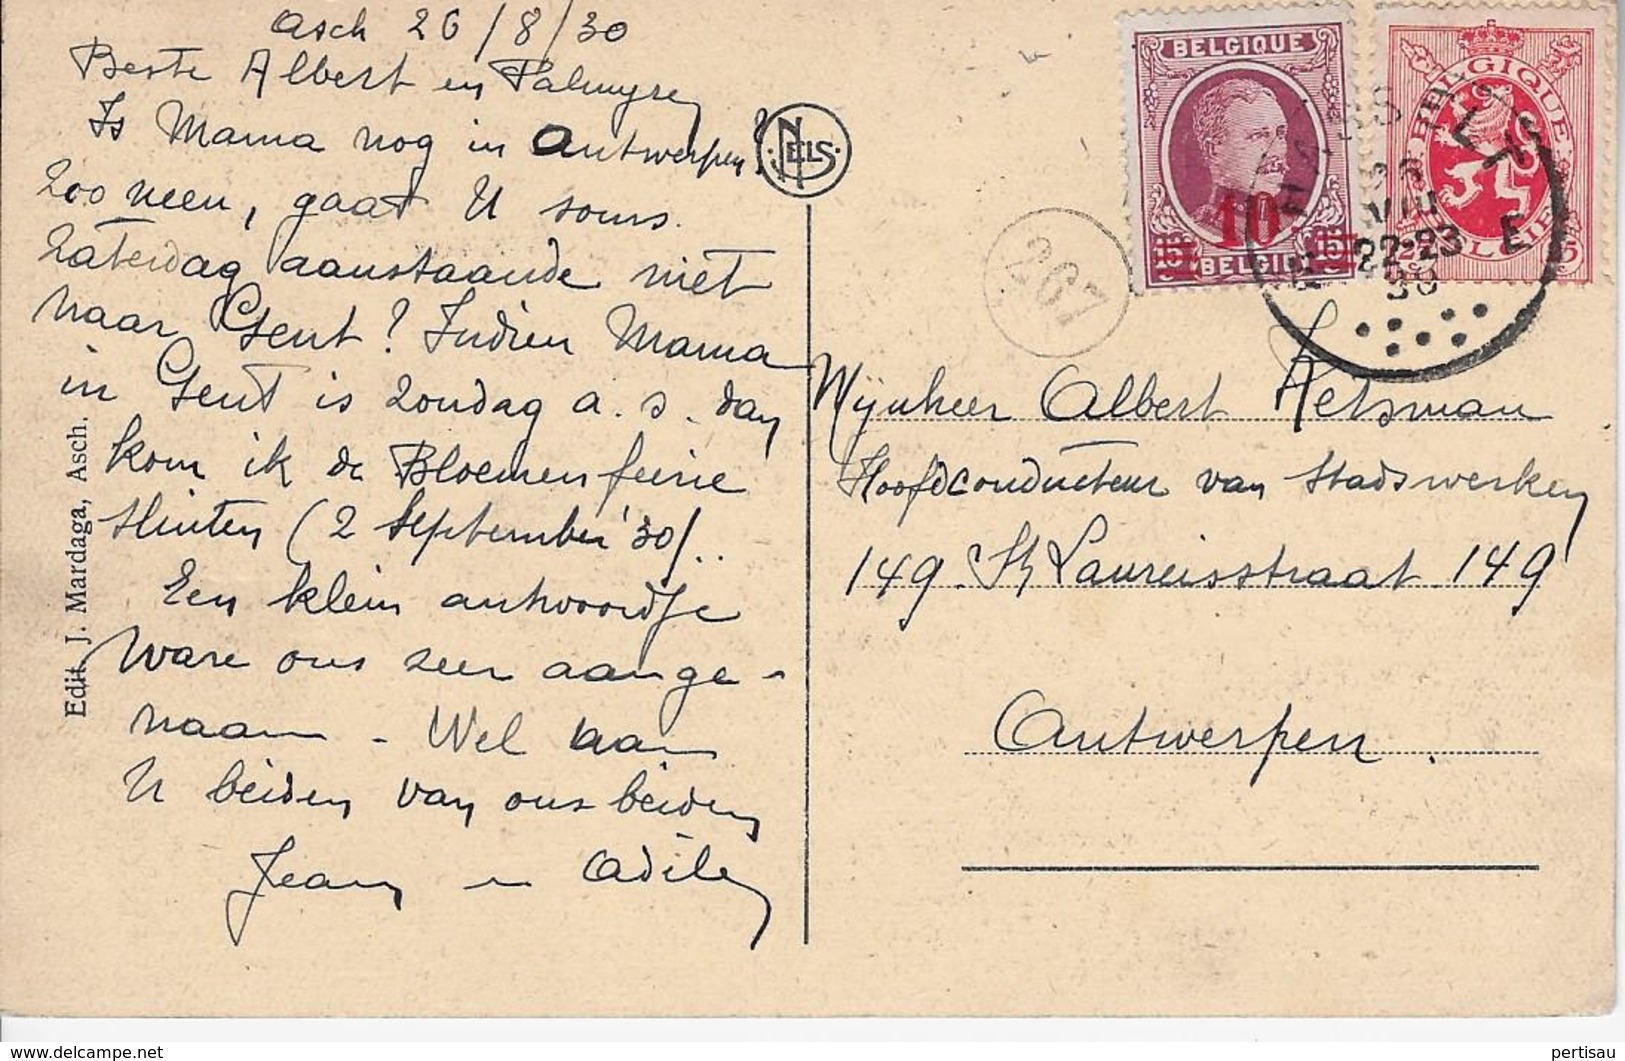 Asch 26/8/30
Beste Albert en Palmyre,
Is Mama nog in Antwerpen?
Zoo neen, gaat U soms
Zaterdag aanstaande niet
naar Gent? Indien Mama
in Gent is zondag a.s. dan
kom ik de Bloemenfeerie
(2 September '30)..
Een klein antwoordje
ware ons zeer aange-
naam - Wel aan
U beiden van ons beiden
Jean en Odile
Edit. J. Mardaga, Asch.
NELS
267
BELGIQUE
10
15 15
BELGIE
BELGIQUE
BELGIE
25
22-23
E
Mijnheer Albert Ketsman
Hoofdconducteur van Stadswerken
149 St Laureisstraat 149
Antwerpen.
pertisau